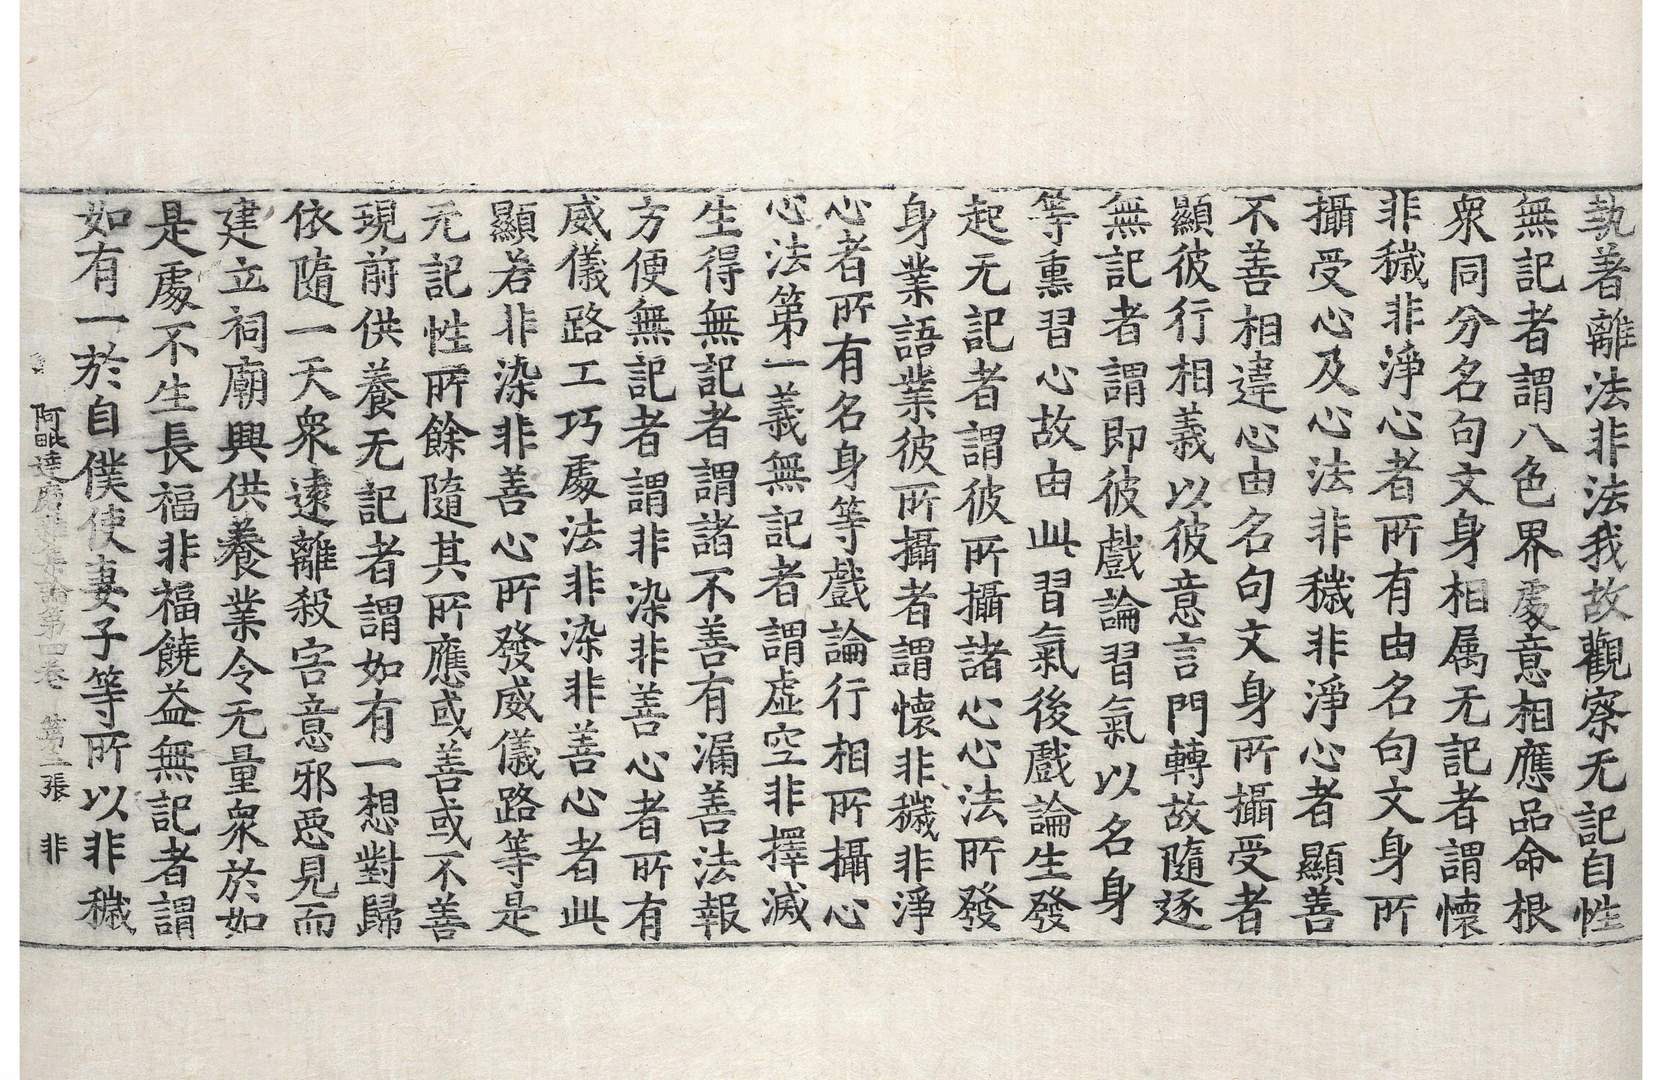 執著離法非法我故觀察无記自性
無記者謂八色界處意相應品命根
衆同分名句文身相属无記者謂懷
非穢非淨心者所有由名句文身所
攝受心及心法非穢非淨心者顯善
不善相違心由名句文身所攝受者
顯彼行相義以彼意言門轉故隨逐
無記者謂即彼戲論習氣以名身
等熏習心故由此習氣後戲論生發
起无記者謂彼所攝諸心心法所發
身業語業彼所攝者謂懷非穢非淨
心者所有名身等戲論行相所攝心
心法第一義無記者謂虛空非擇滅
生得無記者謂諸不善有漏善法報
方便無記者謂非染非善心者所有
威儀路工巧處法非染非善心者此
顯若非染非善心所發威儀路等是
无記性所餘隨其所應或善或不善
現前供養无記者謂如有一想對歸
依隨一天衆遠離殺害意邪惡見而
建立祠廟興供養業令无量衆於如
是處不生長福非福饒益無記者謂
如有一於自僕使妻子等所以非穢
阿毗達磨雜集論第四卷 第二張 非